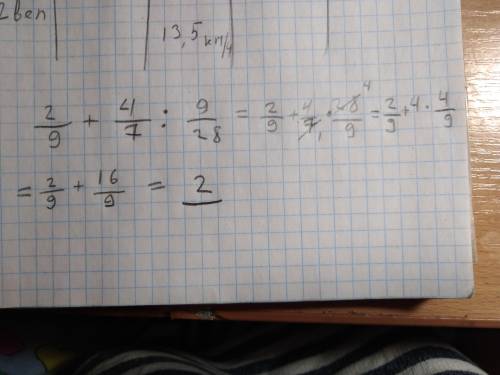 2вел
13,5 км/ч
2/9 + 4/7 : 9/28 = 2/9 + 4/7 1 · 28 4/9 = 2/9 + 4 · 4/9
= 2/9 + 16/9 = 2